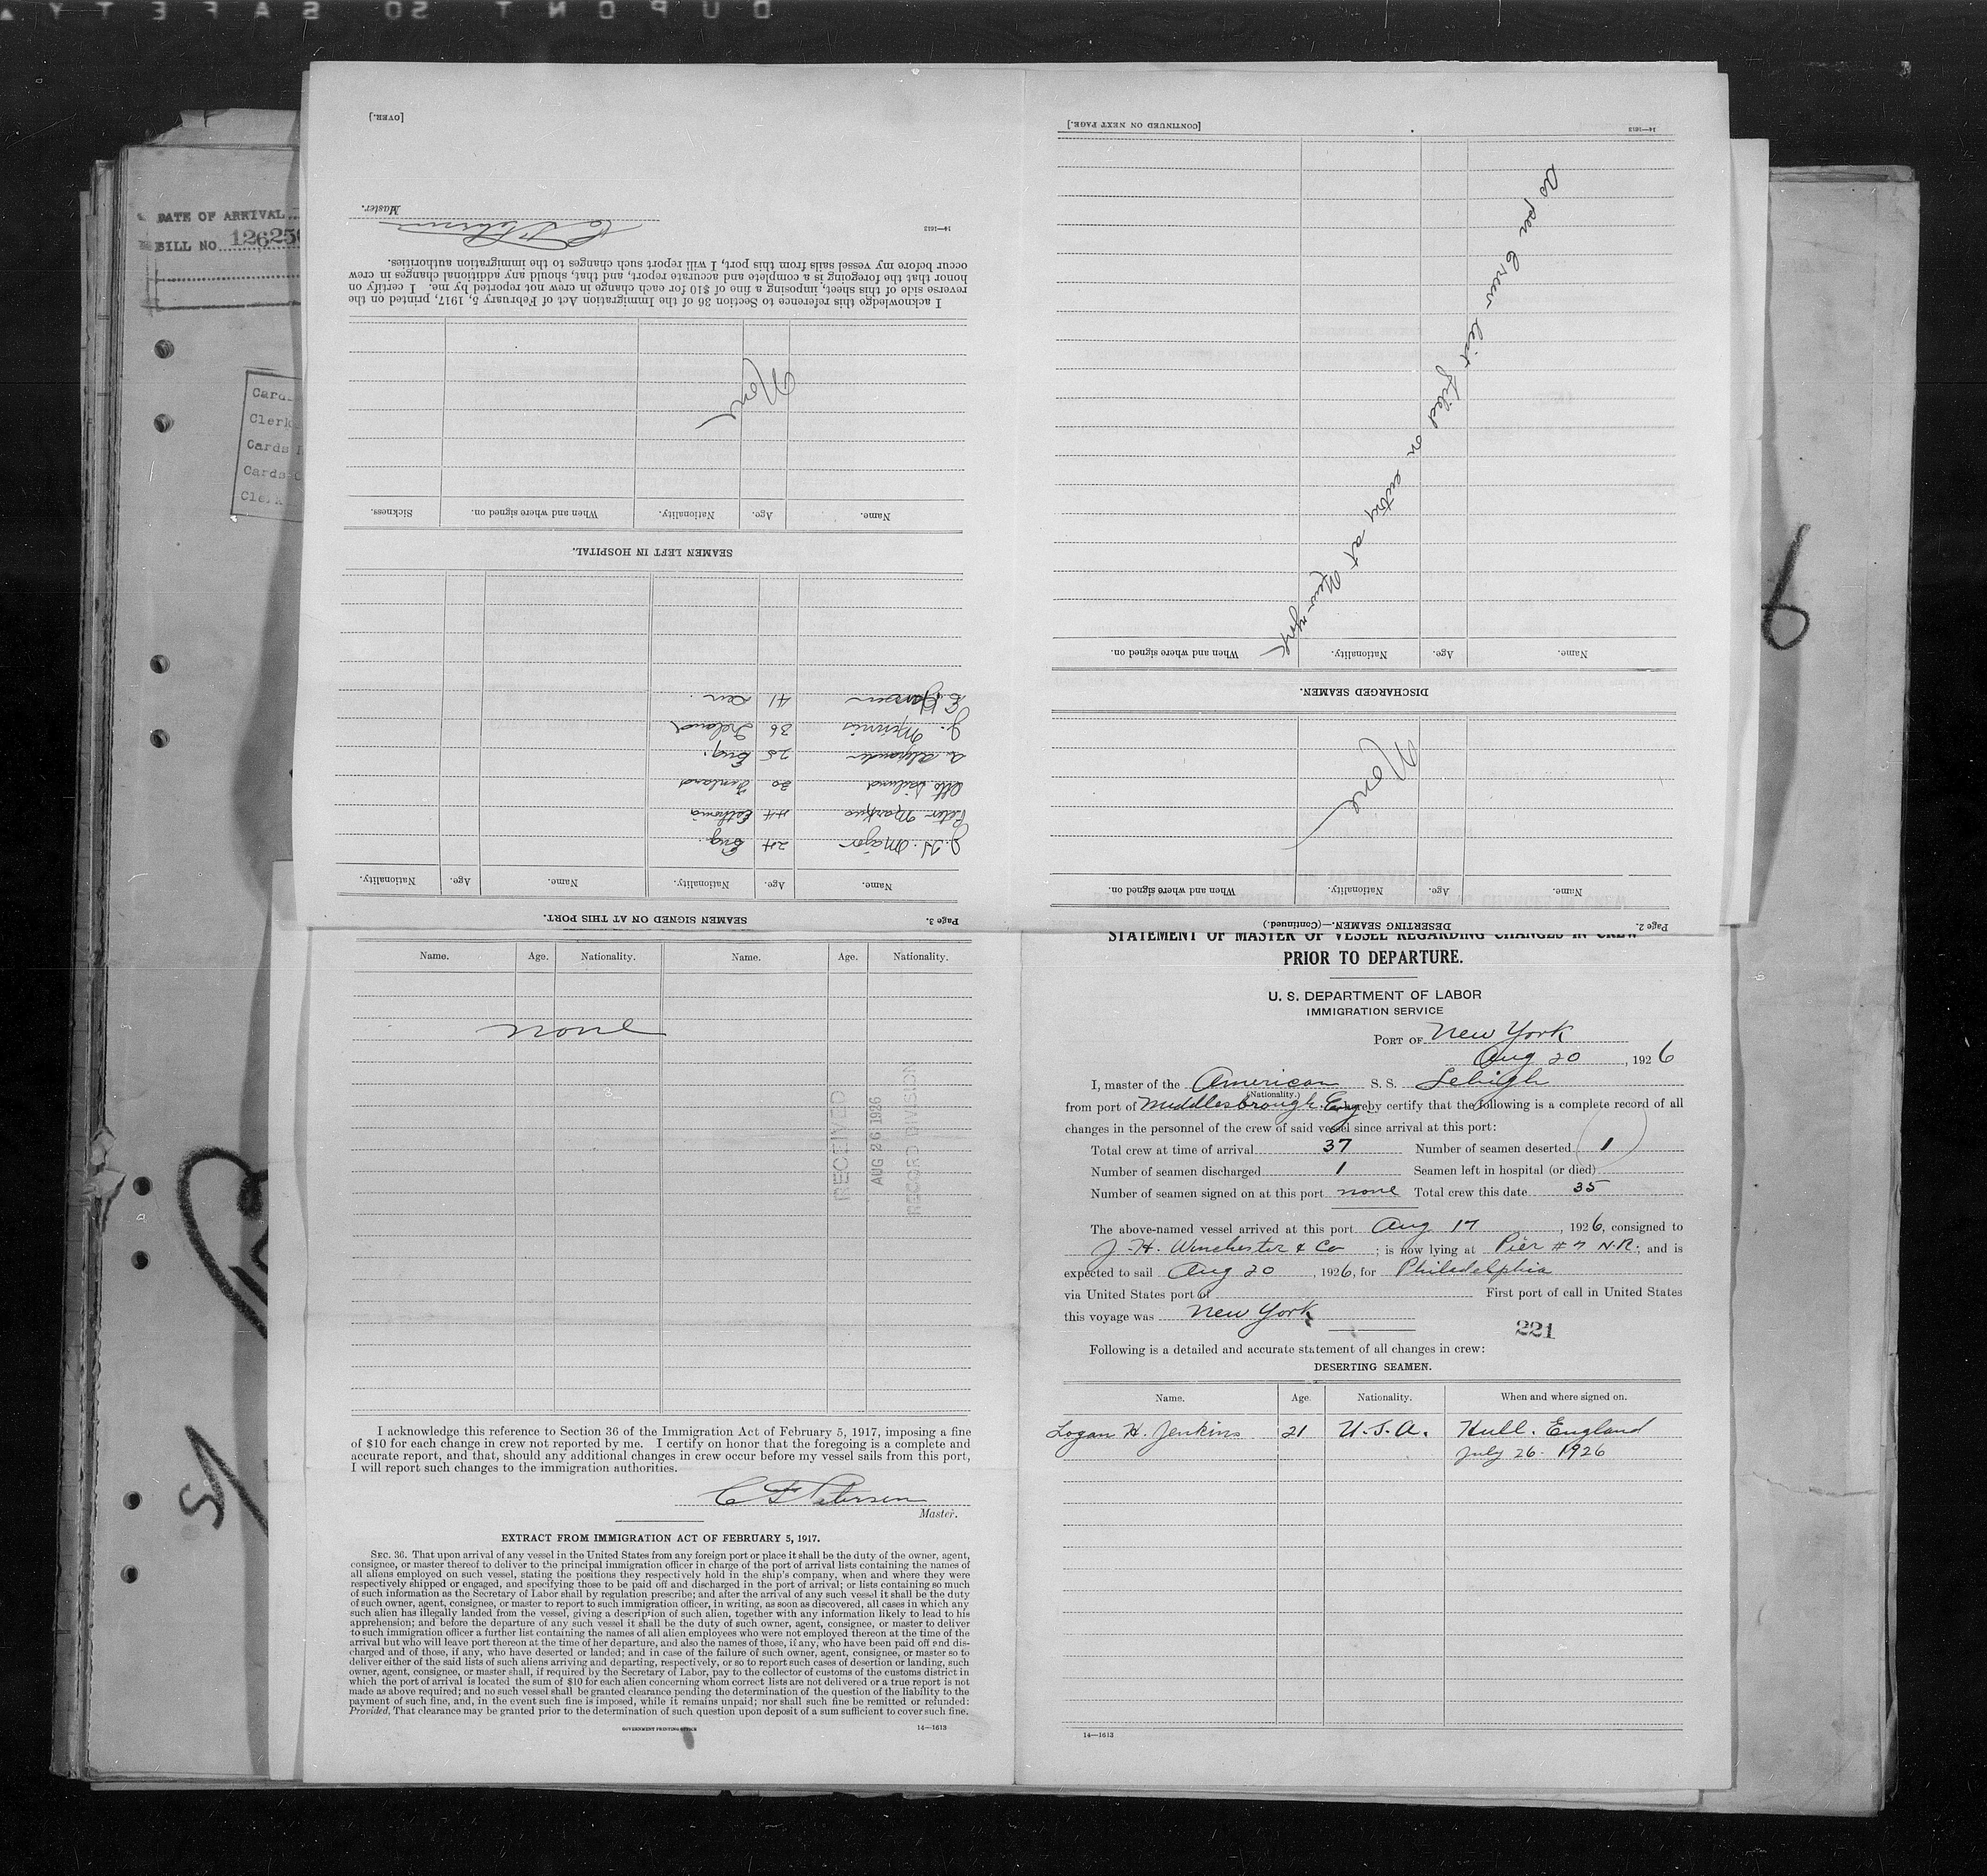 DUPONT SO SAFETY
DATE OF ARRIVAL
BILL NO. 12625
Card
Clerk
Cards
Cards
Clerk
6
[OVER.]
Master.
14—1613
I acknowledge this reference to Section 36 of the Immigration Act of February 5, 1917, printed on the
reverse side of this sheet, imposing a fine of $10 for each change in crew not reported by me. I certify on
honor that the foregoing is a complete and accurate report, and that, should any additional changes in crew
occur before my vessel sails from this port, I will report such changes to the immigration authorities.
None
Name. Age. Nationality. When and where signed on. Sickness.
SEAMEN LEFT IN HOSPITAL.
E. Hansen 41 Den.
J. Minnis 36 Ireland
A. Alexander 25 Eng.
Otto 20 Finland
Peter Markus 44 Esthonia
J. H. Major 24 Eng.
Name. Age. Nationality. Name. Age. Nationality.
Page 3. SEAMEN SIGNED ON AT THIS PORT.
[CONTINUED ON NEXT PAGE.]
14—1613
As per Crew list filed on entry at New York
Name. Age. Nationality. When and where signed on.
DISCHARGED SEAMEN.
None
Name. Age. Nationality. When and where signed on.
Page 2. DESERTING SEAMEN.—(Continued.)
Name. Age. Nationality. Name. Age. Nationality.
none
RECEIVED
AUG 26 1926
RECORD DIVISION
I acknowledge this reference to Section 36 of the Immigration Act of February 5, 1917, imposing a fine
of $10 for each change in crew not reported by me. I certify on honor that the foregoing is a complete and
accurate report, and that, should any additional changes in crew occur before my vessel sails from this port,
I will report such changes to the immigration authorities.
C F Petersen
Master.
EXTRACT FROM IMMIGRATION ACT OF FEBRUARY 5, 1917.
SEC. 36. That upon arrival of any vessel in the United States from any foreign port or place it shall be the duty of the owner, agent,
consignee, or master thereof to deliver to the principal immigration officer in charge of the port of arrival lists containing the names of
all aliens employed on such vessel, stating the positions they respectively hold in the ship's company, when and where they were
respectively shipped or engaged, and specifying those to be paid off and discharged in the port of arrival; or lists containing so much
of such information as the Secretary of Labor shall by regulation prescribe; and after the arrival of any such vessel it shall be the duty
of such owner, agent, consignee, or master to report to such immigration officer, in writing, as soon as discovered, all cases in which any
such alien has illegally landed from the vessel, giving a description of such alien, together with any information likely to lead to his
apprehension; and before the departure of any such vessel it shall be the duty of such owner, agent, consignee, or master to deliver
to such immigration officer a further list containing the names of all alien employees who were not employed thereon at the time of the
arrival but who will leave port thereon at the time of her departure, and also the names of those, if any, who have been paid off and dis-
charged and of those, if any, who have deserted or landed; and in case of the failure of such owner, agent, consignee, or master so to
deliver either of the said lists of such aliens arriving and departing, respectively, or so to report such cases of desertion or landing, such
owner, agent, consignee, or master shall, if required by the Secretary of Labor, pay to the collector of customs of the customs district in
which the port of arrival is located the sum of $10 for each alien concerning whom correct lists are not delivered or a true report is not
made as above required; and no such vessel shall be granted clearance pending the determination of the question of the liability to the
payment of such fine, and, in the event such fine is imposed, while it remains unpaid; nor shall such fine be remitted or refunded:
Provided, That clearance may be granted prior to the determination of such question upon deposit of a sum sufficient to cover such fine.
GOVERNMENT PRINTING OFFICE 14—1613
STATEMENT OF MASTER OF VESSEL REGARDING CHANGES IN CREW
PRIOR TO DEPARTURE.
U. S. DEPARTMENT OF LABOR
IMMIGRATION SERVICE
PORT OF New York
Aug 20, 1926
I, master of the American S. S. Lehigh
(Nationality.)
from port of Middlesbrough. Eng hereby certify that the following is a complete record of all
changes in the personnel of the crew of said vessel since arrival at this port:
Total crew at time of arrival 37 Number of seamen deserted 1
Number of seamen discharged 1 Seamen left in hospital (or died)
Number of seamen signed on at this port none Total crew this date 35
The above-named vessel arrived at this port Aug 17, 1926, consigned to
J. H. Winchester & Co; is now lying at Pier # 7 N.R., and is
expected to sail Aug 20, 1926, for Philadelphia
via United States port of First port of call in United States
this voyage was New York
221
Following is a detailed and accurate statement of all changes in crew:
DESERTING SEAMEN.
Name. Age. Nationality. When and where signed on.
Logan H. Jenkins 21 U.S.A. Hull. England
July 26 - 1926
14—1613